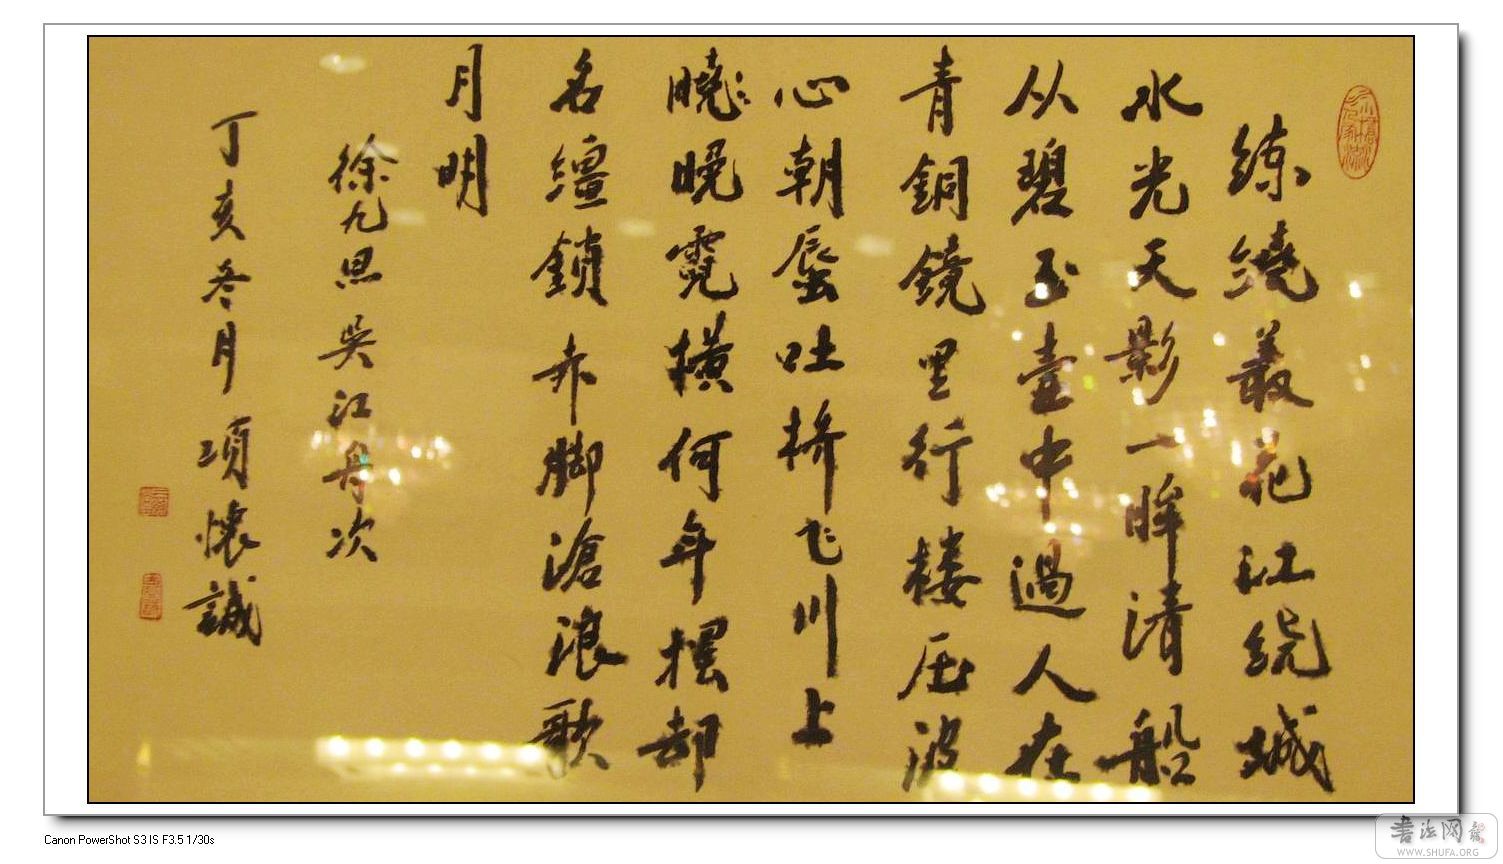 练繞叢花江绕城
水光天影一眸清船
从碧玉壺中過人在
青銅鏡里行楼压波
心朝蜃吐桥飞川上
曉晚霓横何年摆却
名缰鎖赤脚滄浪歌
月明
徐九思吳江舟次
丁亥冬月項懷誠
Canon PowerShot S3 IS F3.5 1/30s
书法网
WWW.SHUFA.ORG